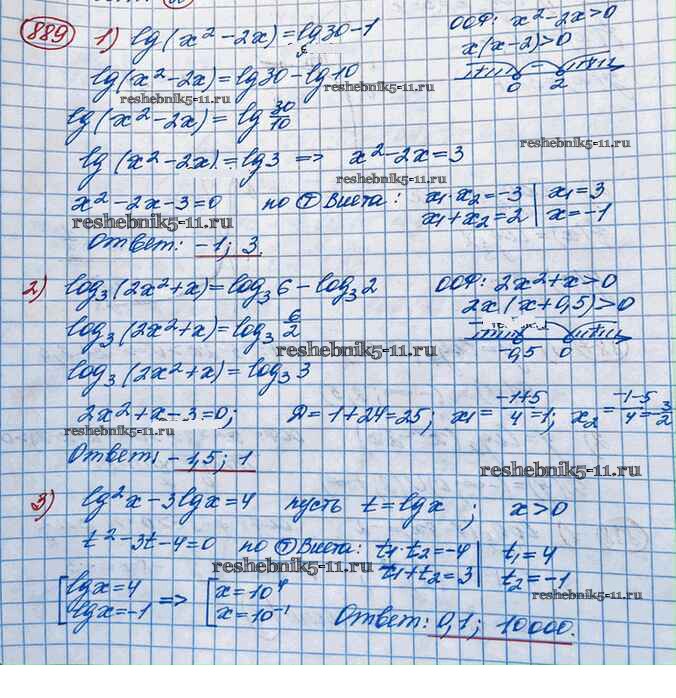 889 1) lg(x²-2x)=lg30-1 ООФ: x²-2x>0
x(x-2)>0
lg(x²-2x)=lg30-lg10
reshebnik5-11.ru
0 2
reshebnik5-11.ru
lg(x²-2x)=lg 30/10
reshebnik5-11.ru
lg(x²-2x)=lg3 => x²-2x=3
x²-2x-3=0 по Т Виета: x₁·x₂=-3 | x₁=3
x₁+x₂=2 | x=-1
reshebnik5-11.ru
Ответ: -1; 3.
2) log₃(2x²+x)=log₃6-log₃2 ООФ: 2x²+x>0
2x(x+0,5)>0
log₃(2x²+x)=log₃ 6/2
-0,5 0
reshebnik5-11.ru
log₃(2x²+x)=log₃3
2x²+x-3=0; Д=1+24=25; x₁=(-1+5)/4=1; x₂=(-1-5)/4=-3/2
reshebnik5-11.ru
Ответ: -1,5; 1
reshebnik5-11.ru
3) lg²x-3lgx=4 пусть t=lgx; x>0
t²-3t-4=0 по Т Виета: t₁·t₂=-4 | t₁=4
t₁+t₂=3 | t₂=-1
reshebnik5-11.ru
reshebnik5-11.ru
[lgx=4 => [x=10⁴
lgx=-1 x=10⁻¹
Ответ: 0,1; 10000.